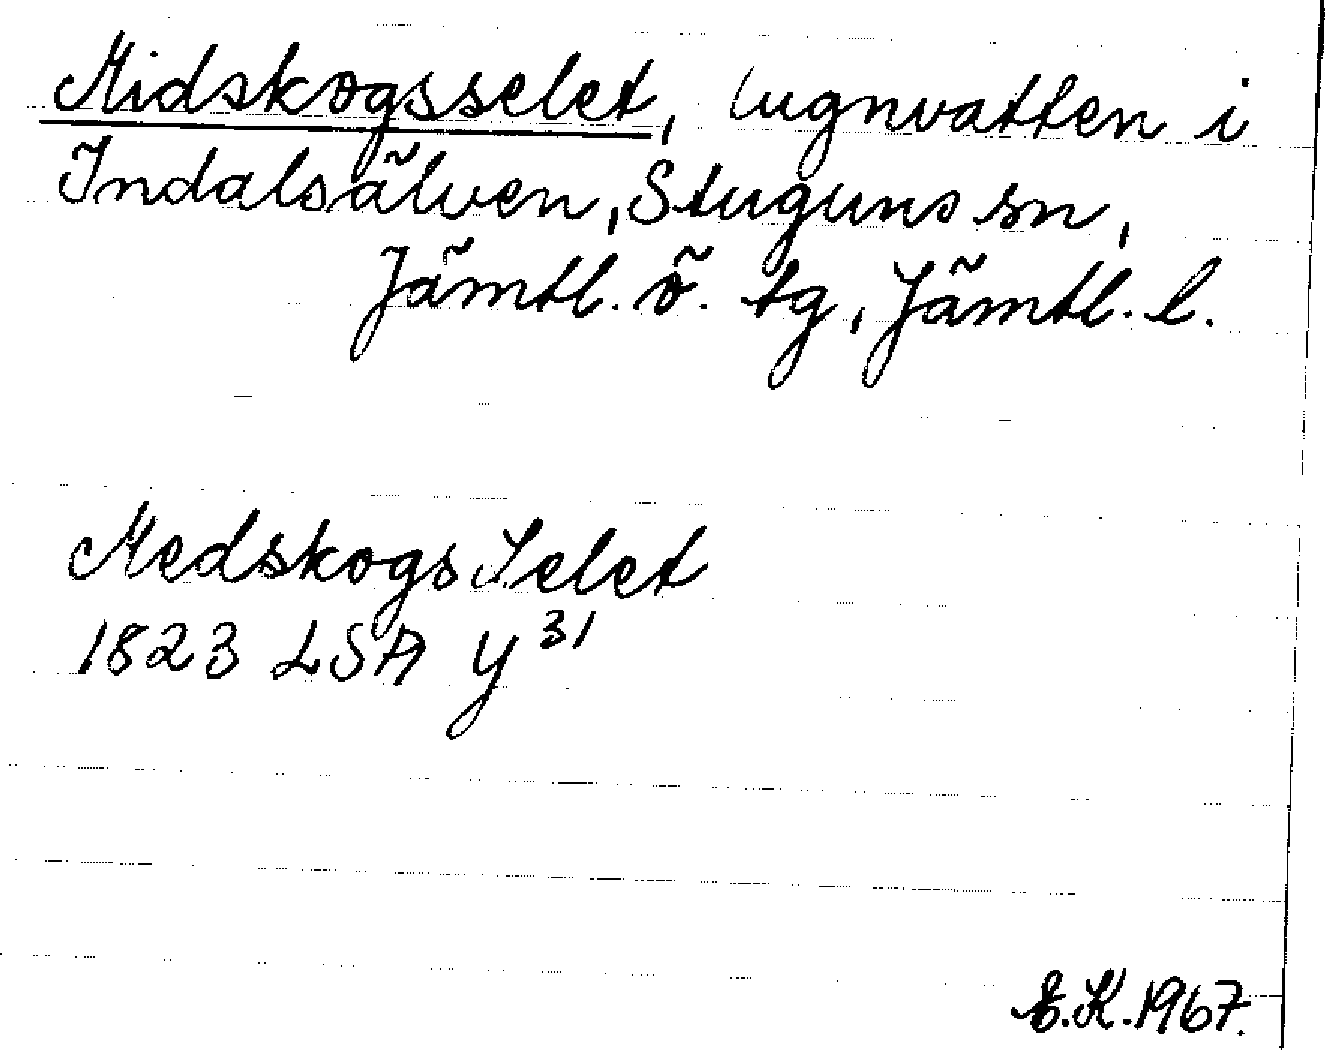 Midskogsselet, lugnvatten i
Indalsälven, Stuguns sn,
Jämtl. ö. tg, Jämtl. l.
Medskogs Selet
1823 LSA Y 31
E.K. 1967.